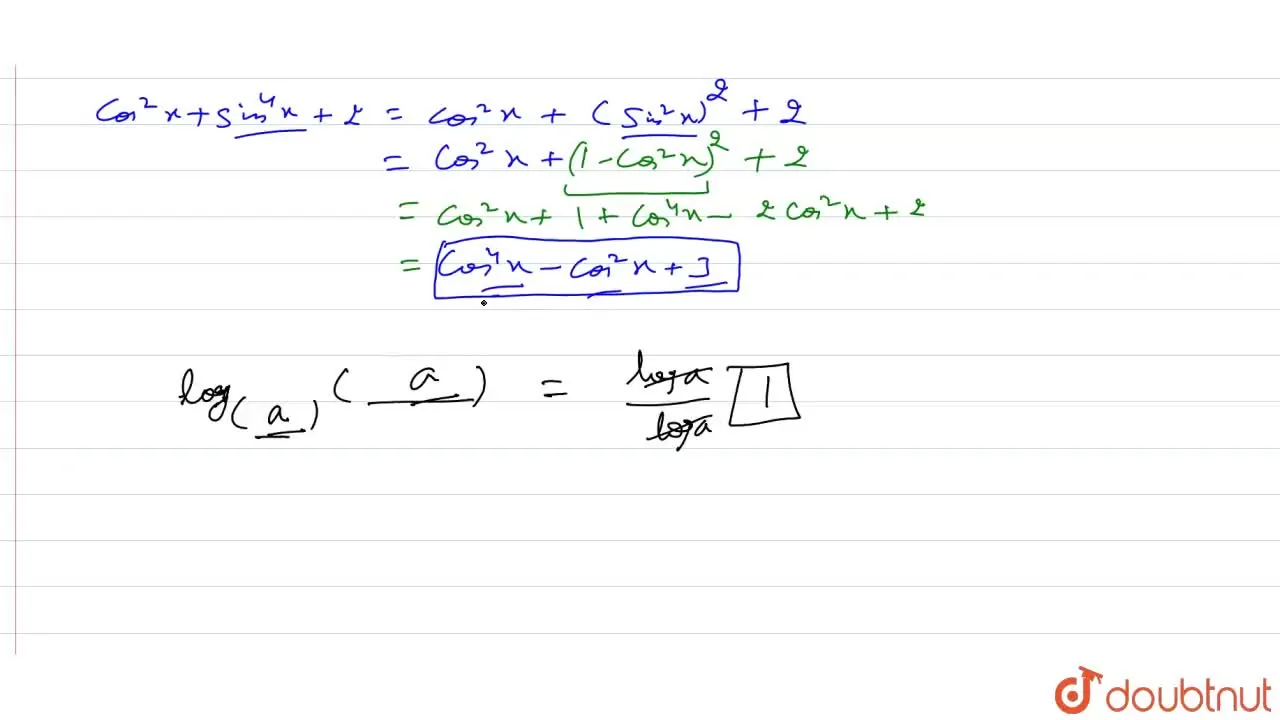 cos²x + sin⁴x + 2 = cos²x + (sin²x)² + 2
= cos²x + (1 - cos²x)² + 2
= cos²x + 1 + cos⁴x - 2cos²x + 2
= cos⁴x - cos²x + 3
log(a) (a) = log a / log a 1
doubtnut